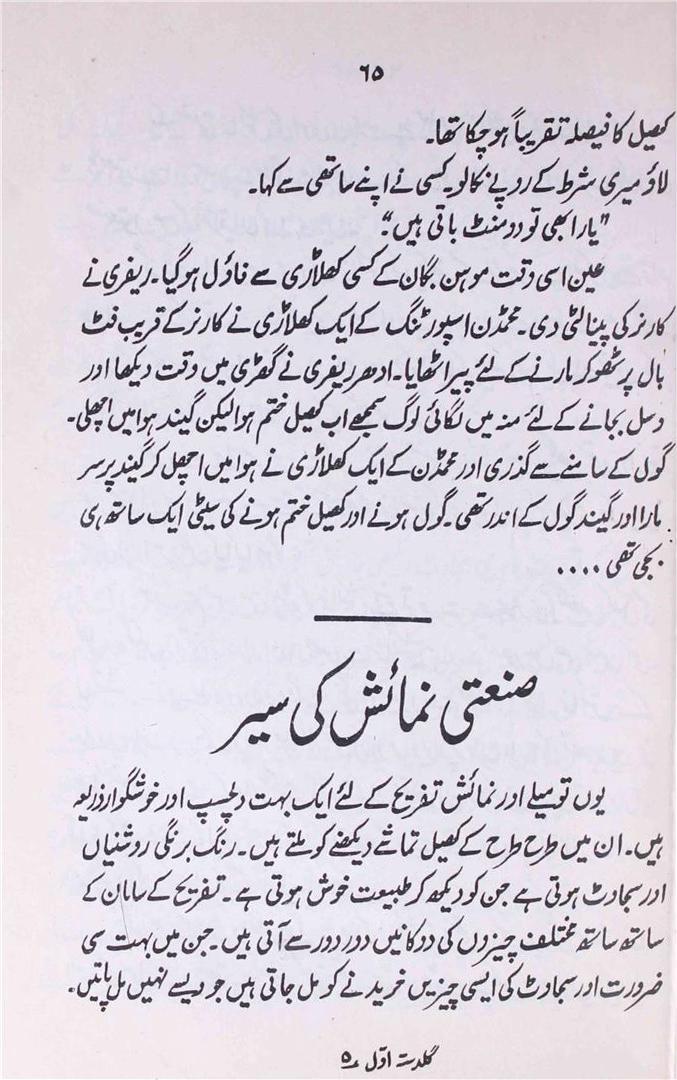 ۶۵
کھیل کا فیصلہ تقریباً ہو چکا تھا۔
لاؤ میری شرط کے روپے نکالو۔ کسی نے اپنے ساتھی سے کہا۔
"یار ابھی تو دو منٹ باقی ہیں"۔
عین اسی وقت موہن بگان کے کسی کھلاڑی سے فاؤل ہو گیا۔ ریفری نے
کارنر کی پینالٹی دی۔ محمڈن اسپورٹنگ کے ایک کھلاڑی نے کارنر کے قریب فٹ
بال پر ٹھوکر مارنے کے لئے پیر اٹھایا۔ ادھر ریفری نے گھڑی میں وقت دیکھا اور
وسل بجانے کے لئے منہ میں لگائی لوگ سمجھے اب کھیل ختم ہوا لیکن گیند ہوا میں اچھلی۔
گول کے سامنے سے گذری اور محمڈن کے ایک کھلاڑی نے ہوا میں اچھل کر گیند پر سر
مارا اور گیند گول کے اندر تھی۔ گول ہونے اور کھیل ختم ہونے کی سیٹی ایک ساتھ ہی
بجی تھی ....
صنعتی نمائش کی سیر
یوں تو میلے اور نمائش تفریح کے لئے ایک بہت دلچسپ اور خوشگوار ذریعہ
ہیں۔ ان میں طرح طرح کے کھیل تماشے دیکھنے کو ملتے ہیں۔ رنگ برنگی روشنیاں
اور سجاوٹ ہوتی ہے جن کو دیکھ کر طبیعت خوش ہوتی ہے۔ تفریح کے سامان کے
ساتھ ساتھ مختلف چیزوں کی دوکانیں دور دور سے آتی ہیں۔ جن میں بہت سی
ضرورت اور سجاوٹ کی ایسی چیزیں خریدنے کو مل جاتی ہیں جو ویسے نہیں مل پاتیں۔
گلدستہ اوّل ؍۵